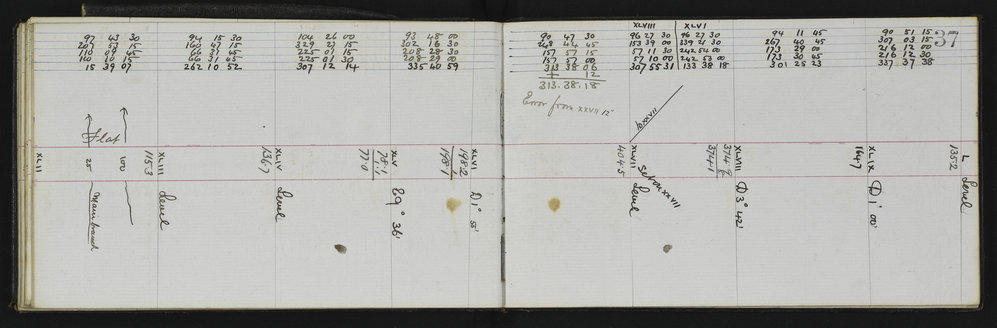 97 43 30
207 53 15
110 09 45
110 10 15
15 39 07
94 15 30
160 47 15
66 31 45
66 31 45
262 10 52
104 26 00
329 27 15
225 01 15
225 01 30
307 12 14
93 48 00
302 16 30
208 28 30
208 29 00
335 40 59
90 47 30
248 44 45
157 57 15
157 57 00
313 38 06
+ 12
313.38.18
Error from XXVII 12"
XLVIII XLVI
96 27 30 96 27 30
153 39 00 339 21 30
57 11 30 242 54 00
57 10 00 242 53 00
307 55 31 133 38 18
94 11 45
267 40 45
173 29 00
173 30 45
301 25 23
90 51 15
307 03 15
216 12 00
216 12 30
337 37 38
37
XLII
Flat
25
100
Main branch
XLIII
1153
Level
XLIV
1367
Level
XLV
77.0
E9° 36'
XLVI
198.2
198.1
D1° 55'
to XXVII
XLVII
404.5
Set on XXVII
Level
XLVIII
374.1
D3° 42'
XLIX
164.7
D1° 00'
L
135.2
Level